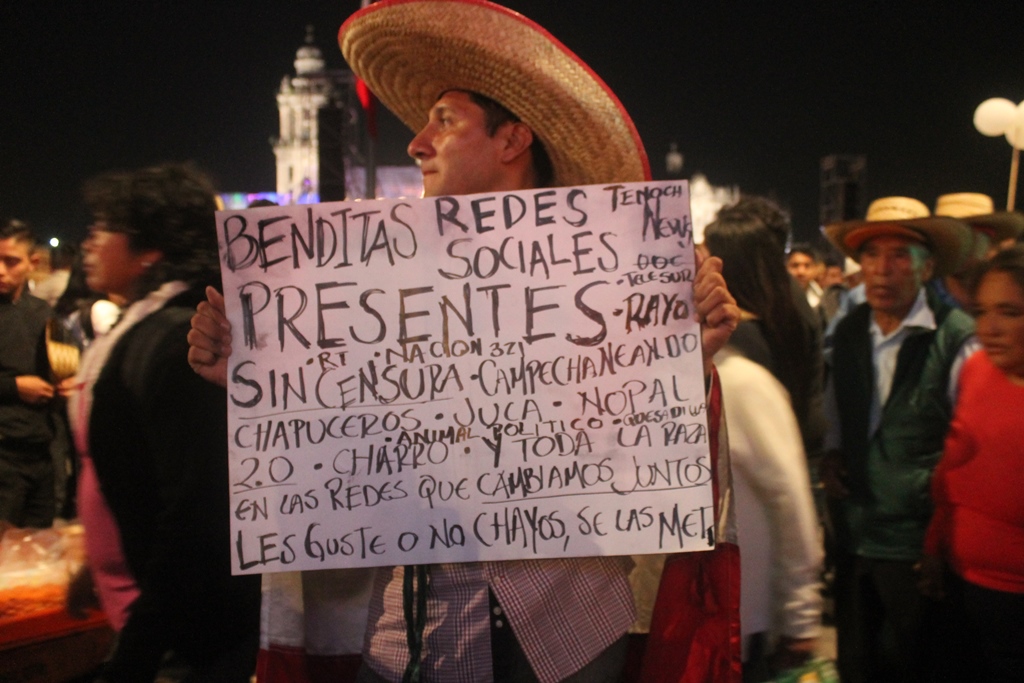 BENDITAS REDES TENOCH
SOCIALES NEWS
PRESENTES · DOC
· TELESUR
· RAYO
· RT · NACION 321
SIN CENSURA · CAMPECHANEANDO
CHAPUCEROS · JUCA · NOPAL
· ANIMAL POLITICO · QUESADILLA
2.0 · CHARRO · Y TODA LA RAZA
EN LAS REDES QUE CAMBIAMOS JUNTOS
LES GUSTE O NO CHAYOS, SE LAS MET.